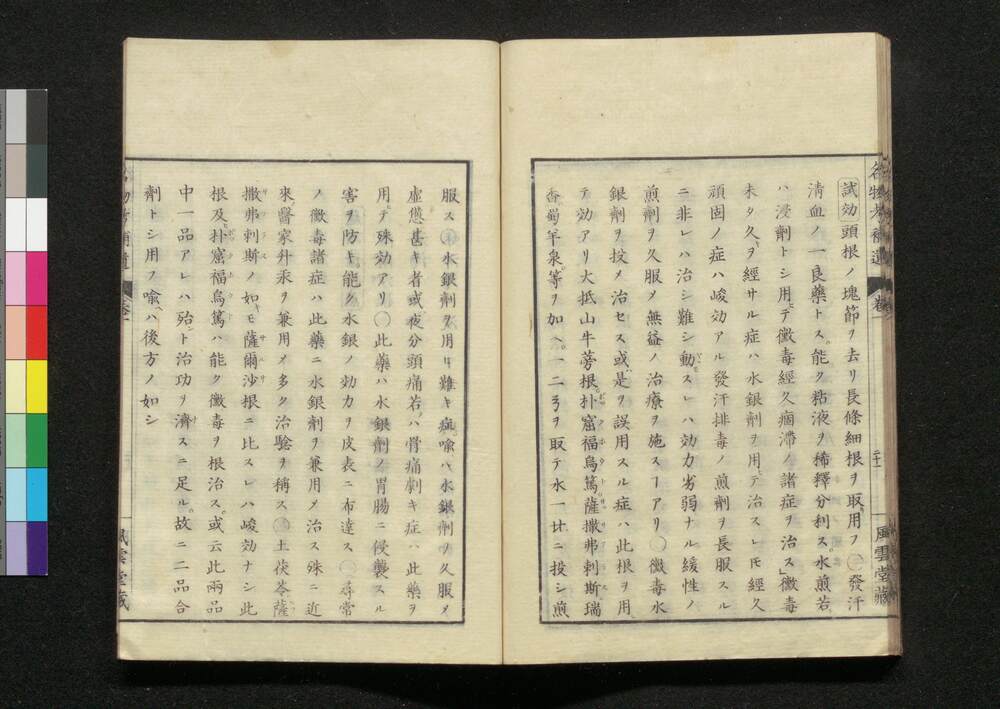 名物考補遺 卷一 二十二 風雲堂藏
試効 頭根ノ塊節ヲ去リ長條細根ヲ取用フ○發汗
清血ノ一良藥トス。能ク粘液ヲ稀釋分利ス。水煎若
ハ浸劑トシ用ヒテ黴毒經久痼滯ノ諸症ヲ治ス」黴毒
未タ久ヲ經サル症ハ水銀劑ヲ用テ治スレ𪜈經久
頑固ノ症ハ峻効アル發汗排毒ノ煎劑ヲ長服スル
ニ非レハ治シ難シ動スレハ効力劣弱ナル緩性ノ
煎劑ヲ久服メ無益ノ治療ヲ施スヿアリ○黴毒水
銀劑ヲ投メ治セス或ハ是ヲ誤用スル症ハ此根ヲ用
テ効アリ大抵山牛蒡根。朴窟福烏篤。薩撒弗剌斯瑞
香。蜀羊泉等ヲ加ヘ。一二弓ヲ取テ水一廾ニ投シ煎
服ス○水銀劑ヲ用ヰ難キ病。喩ヘハ水銀劑ヲ久服メ
虛憊甚キ者或ハ夜分頭痛若クハ骨痛劇キ症ハ此藥ヲ
用テ殊効アリ○此藥ハ水銀劑ノ胃腸ニ侵襲スル
害ヲ防キ。能ク水銀ノ効力ヲ皮表ニ布達ス○尋常
ノ黴毒諸症ハ此藥ニ水銀劑ヲ兼用メ治ス殊ニ近
來醫家升汞ヲ兼用メ多ク治驗ヲ稱ス○土茯苓薩
撒弗剌斯ノ如キモ薩爾沙根ニ比スレハ峻効ナシ此
根及ヒ朴窟福烏篤ハ能ク黴毒ヲ根治ス。或云此兩品
中一品アレハ殆ント治功ヲ濟スニ足ル。故ニ二品合
劑トシ用フ喩ヘハ後方ノ如シ
名物考補遺 卷一 風雲堂藏